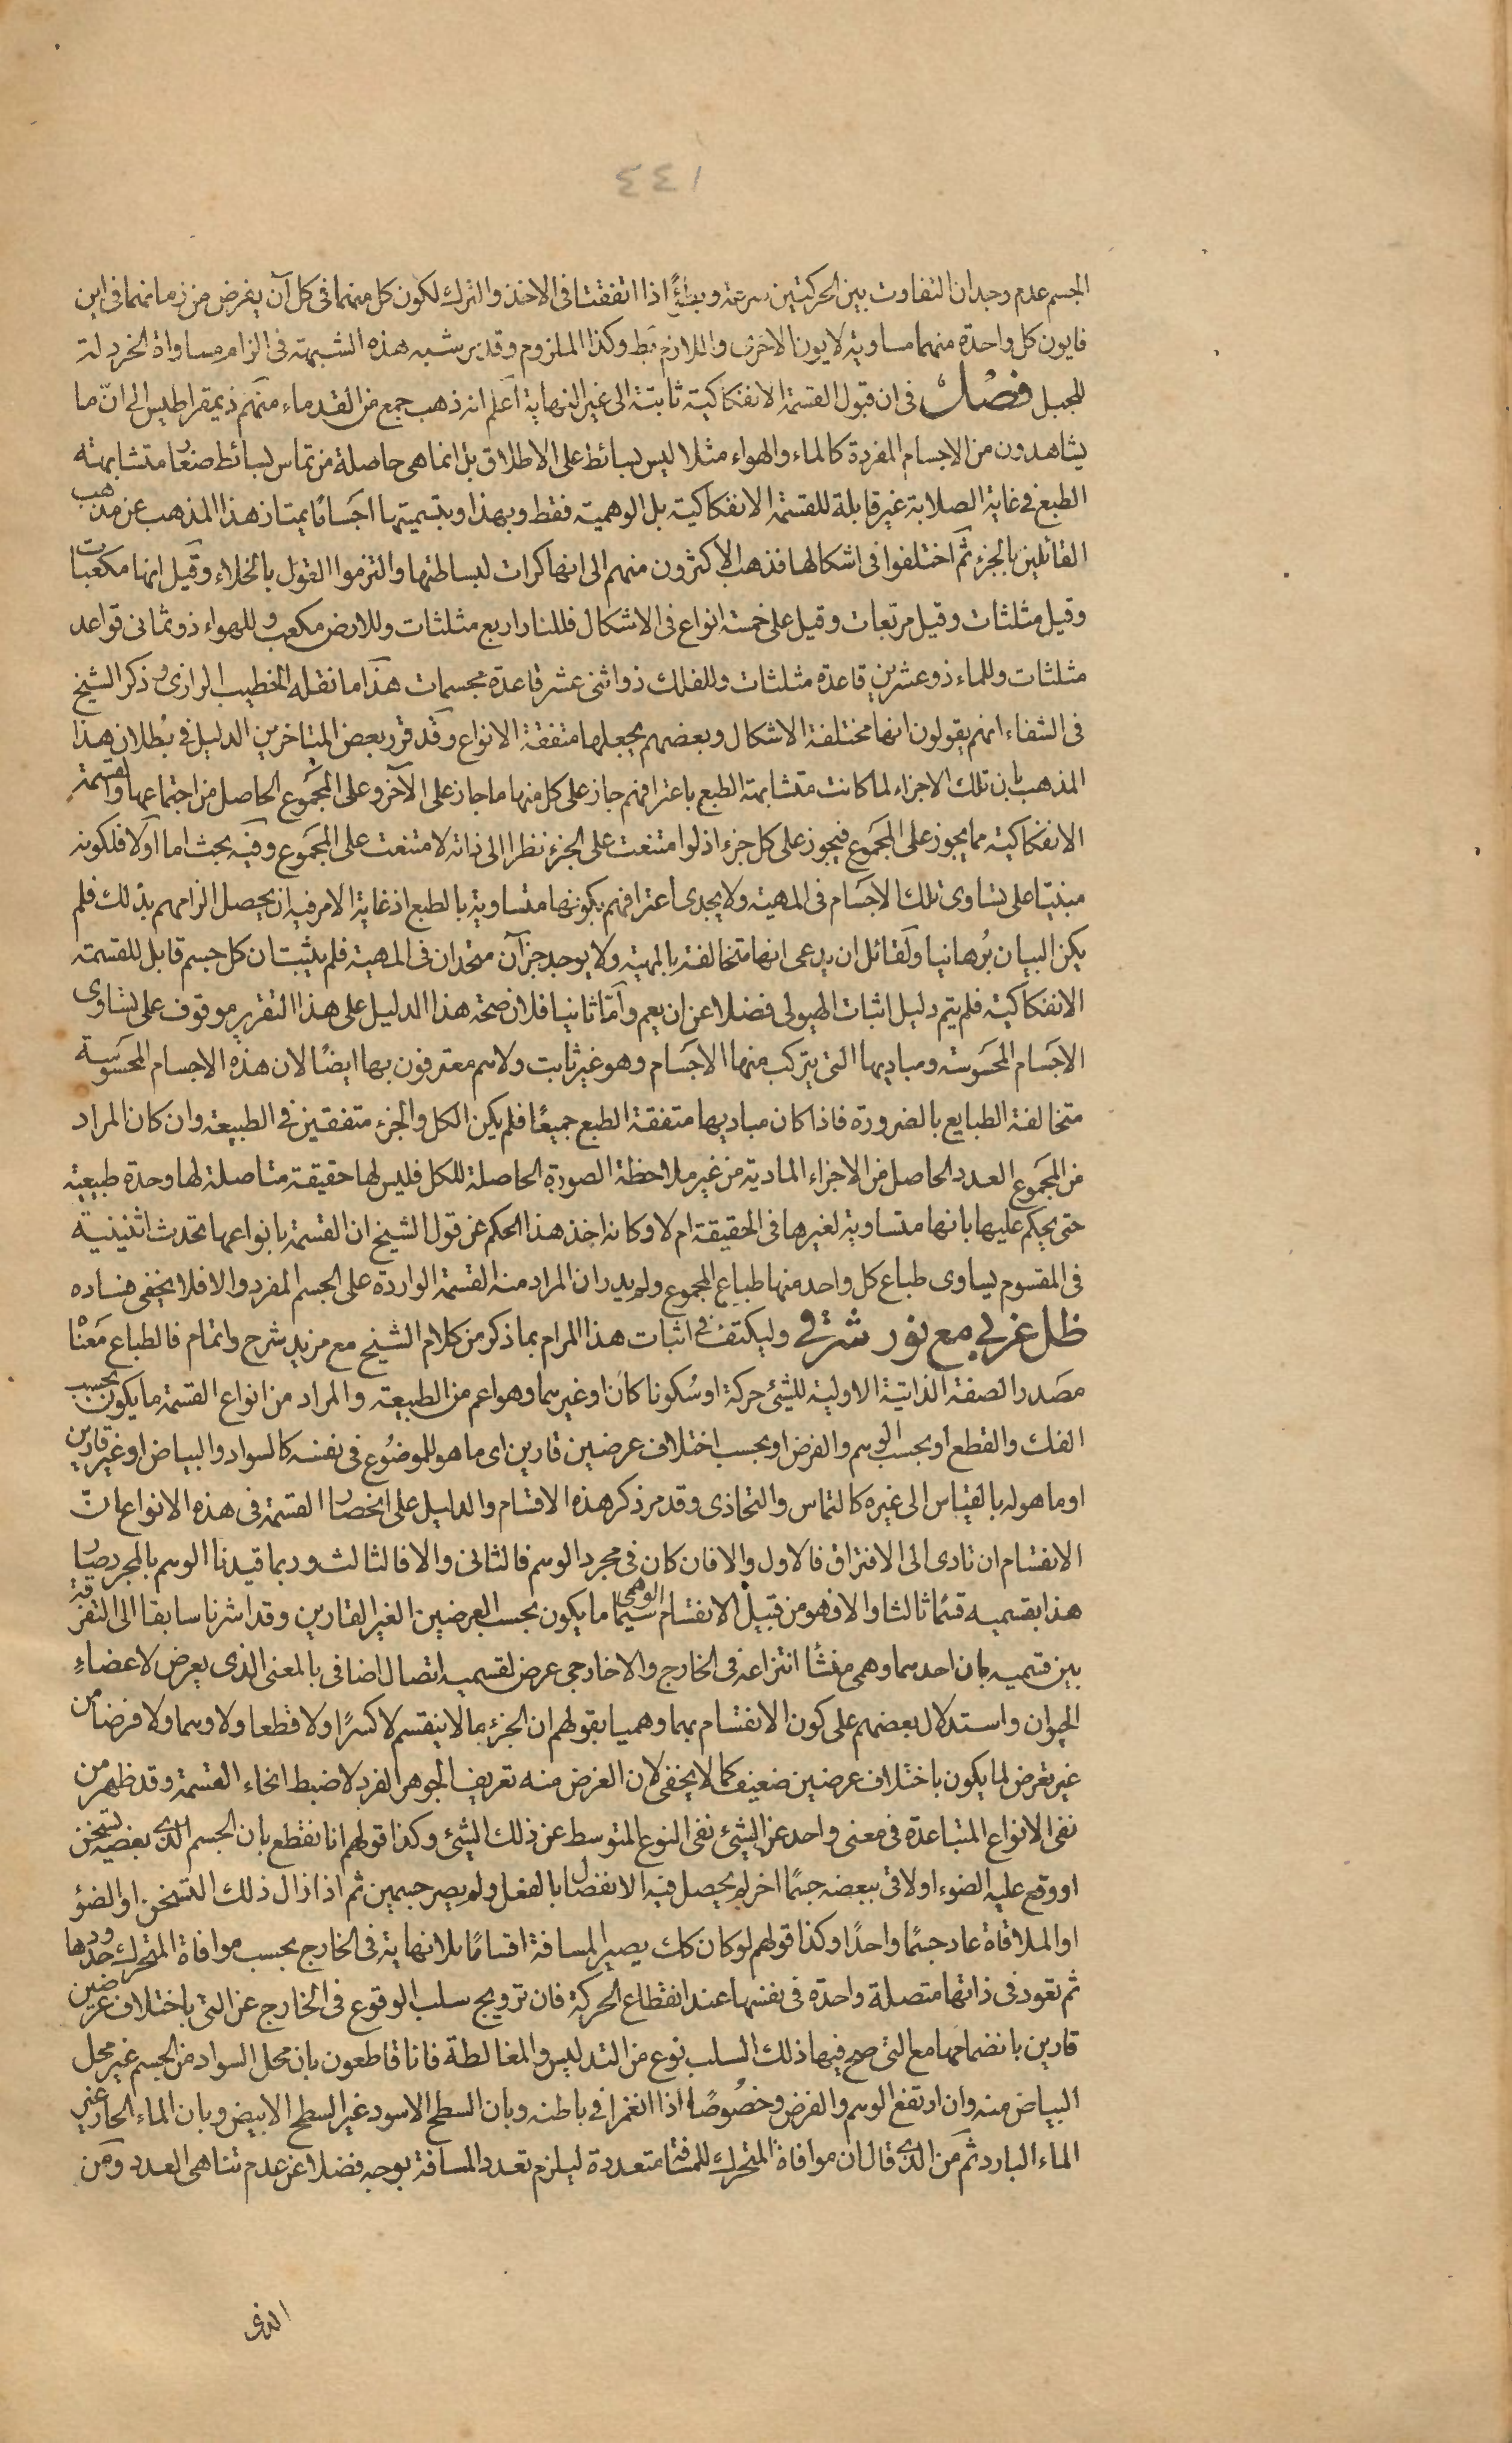 ٤٤١
الجسم عدم وجدان التفاوت بين الحركتين سرعة وبطأً اذا اتفقتا فى الاخذ والترك لكون كل منهما فى كل آن يفرض من زمانهما فى اين
فايون كل واحدة منهما مساوية لايون الاخرى واللازم بط وكذا الملزوم وقد ير شبه هذه الشبهة فى الزام مساواة الخردلة
للجبل فصل فى ان قبول القسمة الانفكاكية ثابتة الى غير النهاية اعلم انه ذهب جمع من القدماء منهم ذيمقراطيس الى انّ ما
يشاهدون من الاجسام المفردة كالماء والهواء مثلا ليس بسائط على الاطلاق بل انما هى حاصلة من تماس بسائط صغار متشابهة
الطبع فى غاية الصلابة غير قابلة للقسمة الانفكاكية بل الوهمية فقط وبهذا وبتسميتها اجسامًا يمتاز هذا المذهب عن مذهب
القائلين بالجزء ثم اختلفوا فى اشكالها فذهب الاكثرون منهم الى انها كرات لبساطتها والتزموا القول بالخلاء وقيل انها مكعبات
وقيل مثلثات وقيل مربعات وقيل على خمسة انواع فى الاشكال فللنار اربع مثلثات وللارض مكعب وللهواء ذو ثمانى قواعد
مثلثات وللماء ذو عشرين قاعدة مثلثات وللفلك ذو اثنى عشر قاعدة مجسمات هذا ما نقله الخطيب الرازى وذكر الشيخ
فى الشفاء انهم يقولون انها مختلفة الاشكال وبعضهم يجعلها متفقة الانواع وقد قرر بعض المتاخرين الدليل فى بُطلان هذا
المذهب بان تلك الاجزاء لما كانت متشابهة الطبع باعترافهم جاز على كل منها ما جاز على الآخر وعلى المجموع الحاصل من اجتماعها والقسمة
الانفكاكية مما يجوز على المجموع فيجوز على كل جزء اذ لو امتنعت على الجزء نظرا الى ذاته لامتنعت على المجموع وفيه بحث اما اولا فلكونه
مبنيّا على تساوى تلك الاجسام فى المهية ولا يجدى اعترافهم بكونها متساوية بالطبع اذ غاية الامر فيه ان يحصل الزامهم بذلك فلم
يكن البيان بُرهانيا ولقائل ان يدعى انها متخالفة بالمهية ولا يوجد جزآن متحدان فى المهية فلم يثبت ان كل جسم قابل للقسمة
الانفكاكية فلم يتم دليل اثبات الهيولى فضلا عن ان يعم وأمّا ثانيا فلان صحة هذا الدليل على هذا التقرير موقوف على تساوى
الاجسام المحسوسة ومباديها التى يتركب منها الاجسام وهو غير ثابت ولا هم معترفون بها ايضًا لان هذه الاجسام المحسوسة
متخالفة الطبايع بالضرورة فاذا كان مباديها متفقة الطبع جميعًا فلم يكن الكل والجزء متفقين فى الطبيعة وان كان المراد
من المجموع العدد الحاصل من الاجزاء المادية من غير ملاحظة الصورة الحاصلة للكل فليس لها حقيقة متاصلة لها وحدة طبيعية
حتى يحكم عليها بانها متساوية لغيرها فى الحقيقة ام لا وكانه اخذ هذا الحكم عن قول الشيخ ان القسمة بانواعها تحدث اثنينية
فى المقسوم يساوى طباع كل واحد منها طباع المجموع ولم يدر ان المراد منه القسمة الواردة على الجسم المفرد والا فلا يخفى فساده
ظل غربى مع نور شرقى وليكتف فى اثبات هذا المرام بما ذكر من كلام الشيخ مع مزيد شرح واتمام فالطباع معنا
مصدر الصفة الذاتية الاولية للشئ حركة او سُكونا كان او غيرهما وهو اعم من الطبيعة والمراد من انواع القسمة ما يكون بحسب
الفك والقطع او بحسب الوهم والفرض او بحسب اختلاف عرضين قارين اى ما هو للموضوع فى نفسه كالسواد والبياض او غير قارين
او ما هو له بالقياس الى غيره كالتماس والتحاذى وقد مر ذكر هذه الاقسام والدليل على انحصار القسمة فى هذه الانواع انّ
الانقسام ان تادى الى الافتراق فالاول والا فان كان فى مجرد الوهم فالثانى والا فالثالث وربما قيدنا الوهم بالمجرد صار
هذا بقسميه قسمًا ثالثا والا فهو من قبيل الانقسام الوهمى سيما ما يكون بحسب العرضين الغير القارين وقد اشرنا سابقا الى التفرقة
بين قسميه بان احدهما وهمى منشأ انتزاعه فى الخارج والاخر خارجى عرض لقسميه اتصال اضافى بالمعنى الذى يعرض لاعضاءِ
الحيوان واستدلال بعضهم على كون الانقسام بهما وهميا بقولهم ان الجزء ما لا ينقسم لا كسرًا ولا قطعا ولا وهما ولا فرضا من
غير تعرض لما يكون باختلاف عرضين ضعيف كما لا يخفى لان الغرض منه تعريف الجوهر الفرد لا ضبط انحاء القسمة وقد ظهر من
نفى الانواع المتباعدة فى معنى واحد عن الشئ نفى النوع المتوسط عن ذلك الشئ وكذا قولهم انا نقطع بان الجسم الذى بعضه تسخن
او وقع عليه الضوء او لاقى ببعضه جسمًا اخر لم يحصل فيه الانفصال بالفعل ولم يصر جسمين ثم اذا زال ذلك التسخن او الضؤ
او الملاقاة عاد جسمًا واحدًا وكذا قولهم لو كان كك يصير المسافة اقسامًا بلا نهاية فى الخارج بحسب موافاة المتحرك حدودها
ثم تعود فى ذاتها متصلة واحدة فى نفسها عند انقطاع الحركة فان ترويج سلب الوقوع فى الخارج عن التى باختلاف عرضين
قارين بانضمامها مع التى صح فيها ذلك السلب نوع من التدليس والمغالطة فانا قاطعون بان محل السواد من الجسم غير محل
البياض منه وان ارتفع الوهم والفرض وخصُوصًا اذا انغمرا فى باطنه وبان السطح الاسود غير السطح الابيض وبان الماء الحار غير
الماء البارد ثم من الذى قال ان موافاة المتحرك للمسافة متعددة ليلزم تعدد المسافة بوجه فضلا عن عدم تناهى العدد ومن
الذى